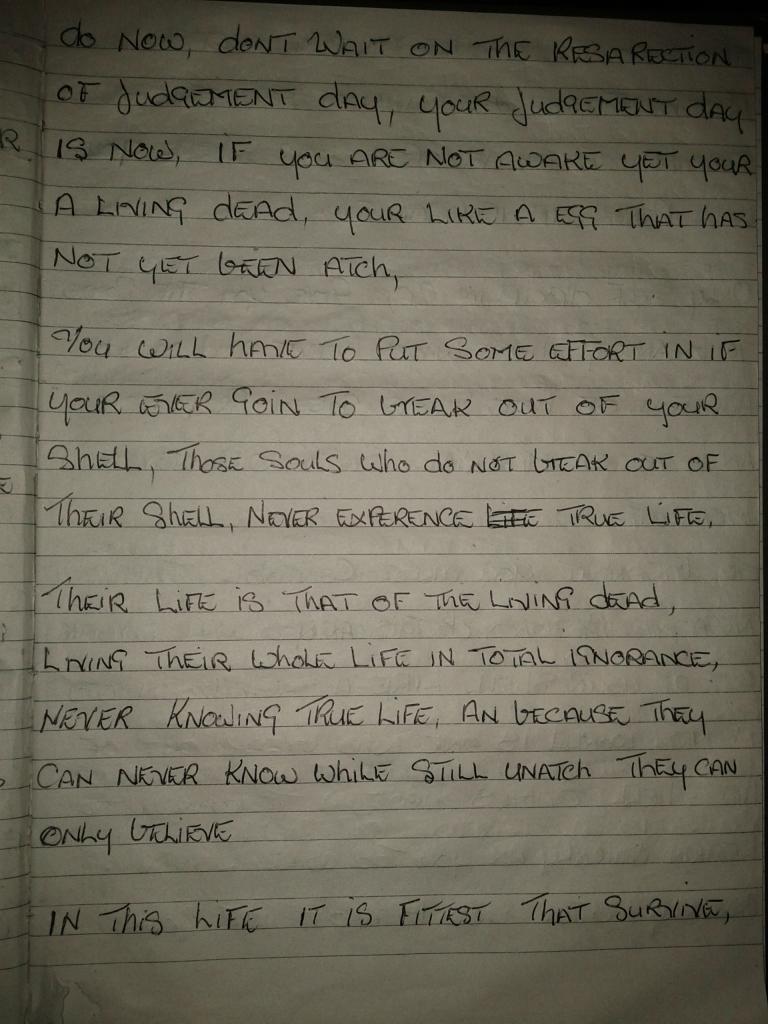 do NOW, dONT WAIT ON THE RESARECTION
OF JUdGEMENT dAY, YOUR JUdGEMENT dAY
IS NOW, IF YOU ARE NOT AWAKE YET YOUR
A LIVING dEAD, YOUR LIKE A EGG THAT hAS
NOT YET bEEN ATCh,
YOU WILL hAVE TO PUT SOME EFFORT IN IF
YOUR EVER GOIN TO bREAK OUT OF YOUR
ShELL, ThOSE SOULS Who do NOT bREAK OUT OF
ThEIR ShELL, NEVER EXPERENCE LIFE TRUE LIFE,
ThEIR LIFE IS THAT OF THE LIVING dEAd,
LIVING ThEIR WhOLE LIFE IN TOTAL IGNORANCE,
NEVER KNOWING TRUE LIFE, AN bECAUSE ThEY
CAN NEVER KNOW WhILE STILL UNATCh ThEY CAN
ONLY bELIEVE
IN ThIS LIFE IT IS FITTEST THAT SURVIVE,